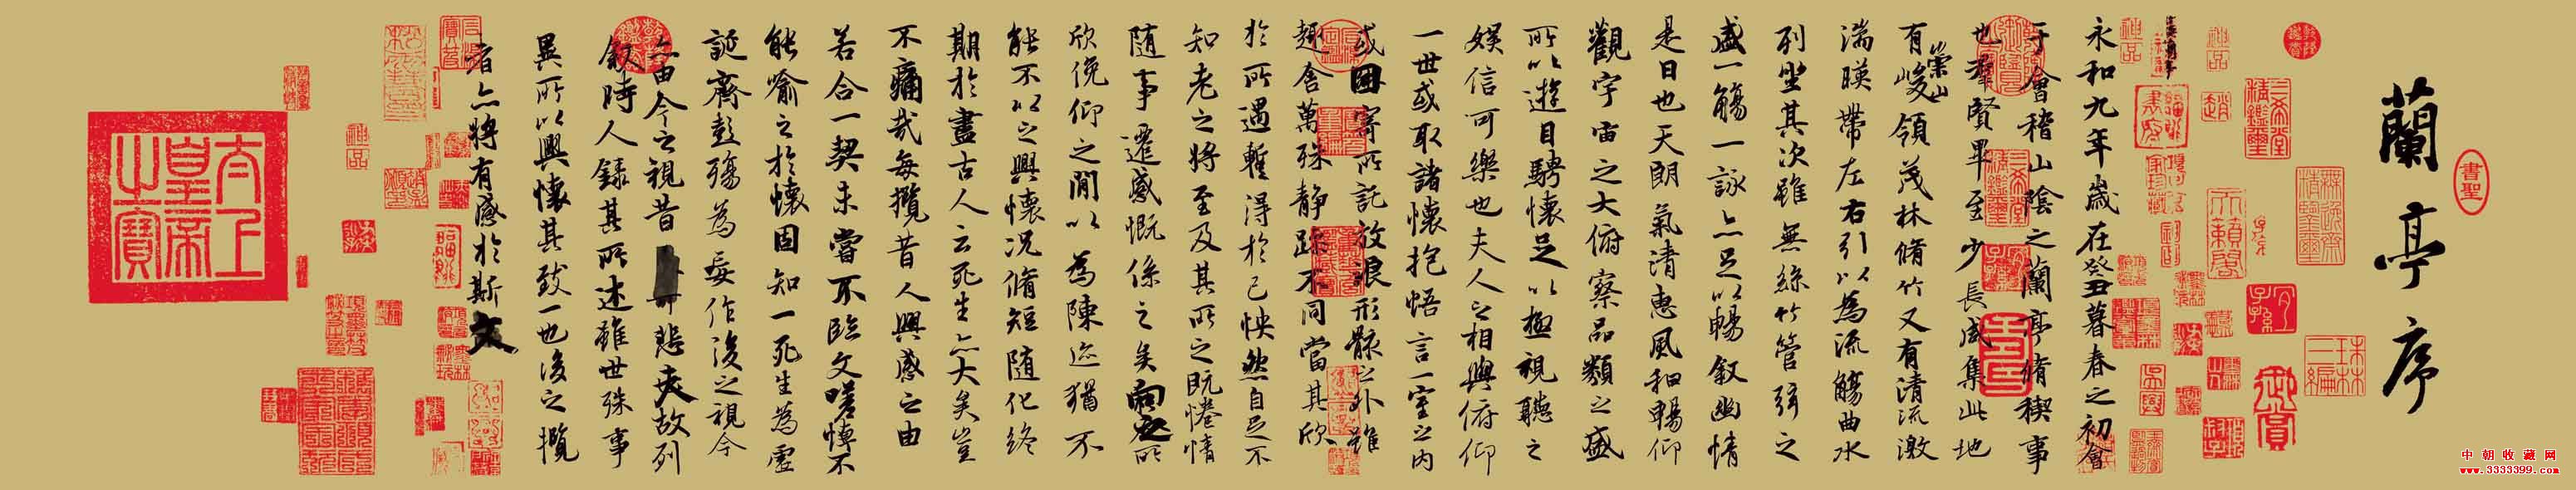 蘭亭序
書聖
永和九年歲在癸丑暮春之初會
于會稽山陰之蘭亭脩稧事
也羣賢畢至少長咸集此地
有崇山峻領茂林脩竹又有清流激
湍暎帶左右引以為流觴曲水
列坐其次雖無絲竹管弦之
盛一觴一詠亦足以暢敘幽情
是日也天朗氣清惠風和暢仰
觀宇宙之大俯察品類之盛
所以遊目騁懷足以極視聽之
娛信可樂也夫人之相與俯仰
一世或取諸懷抱悟言一室之內
或因寄所託放浪形骸之外雖
趣舍萬殊静躁不同當其欣
於所遇暫得於己怏然自足不
知老之將至及其所之既惓情
隨事遷感慨係之矣向之所
欣俛仰之間以為陳迹猶不
能不以之興懷況脩短隨化終
期於盡古人云死生亦大矣豈
不痛哉每攬昔人興感之由
若合一契未嘗不臨文嗟悼不
能喻之於懷固知一死生為虛
誕齊彭殤為妄作後之視今
亦由今之視昔悲夫故列
敘時人錄其所述雖世殊事
異所以興懷其致一也後之攬
者亦將有感於斯文
太上皇帝之寶
中朝收藏网
www.3333399.com